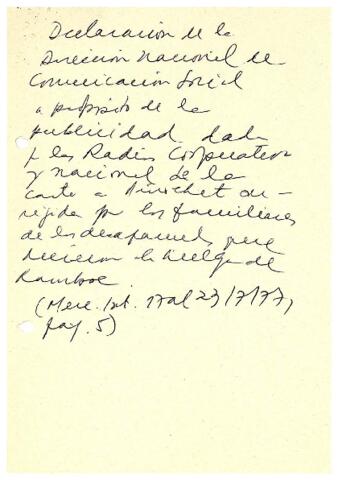 Declaración de la
Dirección Nacional de
Comunicación Social
a propósito de la
publicidad dada
p las Radios Cooperativa
y Nacional de la
carta a Pinochet di-
rigida por los familiares
de los desaparecidos que
hicieron la huelga de
hambre
(Merc. Int. 17 al 23/7/77,
pag. 5)